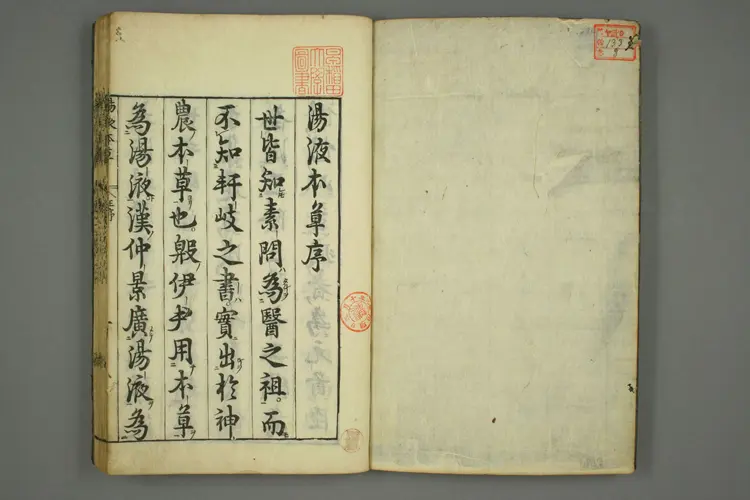 湯液本草序
世皆知素問為醫之祖而
不知軒岐之書實出於神
農本草也殷伊尹用本草
為湯液漢仲景廣湯液為
133